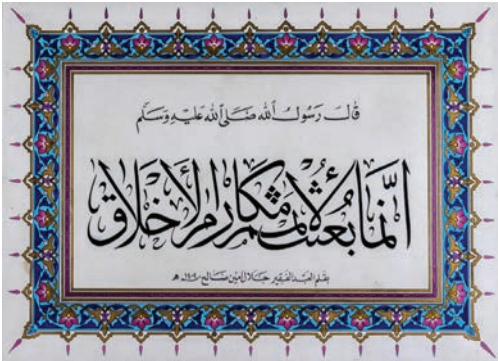 قَالَ رَسُولُ ٱللّٰه صَلَّى ٱللّٰه عَلَيْهِ وَسَلَّم
اِنَّمَا بُعِثْتُ لِأُتَمِّمَ مَكَارِمَ الأَخْلَاق
بقلم العبد الفقير جلال امين صالح